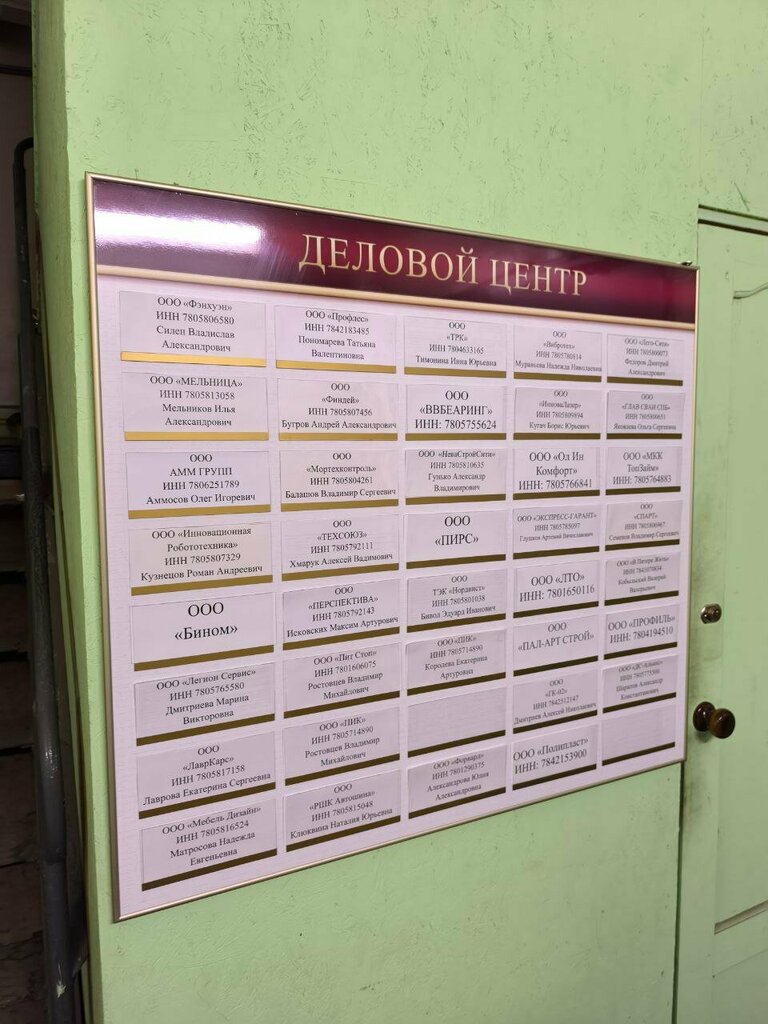 ДЕЛОВОЙ ЦЕНТР
ООО «Фэнхуэн»
ИНН 7805806580
Силен Владислав
Александрович
ООО «Профлес»
ИНН 7842183485
Пономарева Татьяна
Валентиновна
ООО
«ТРК»
ИНН 7804633165
Тимонина Инна Юрьевна
ООО
«Вибротех»
ИНН 7805780814
Муравьева Надежда Николаевна
ООО «Лего-Сити»
Федоров Дмитрий
Александрович
ООО «МЕЛЬНИЦА»
ИНН 7805813058
Мельников Илья
Александрович
ООО
«Финдей»
ИНН 7805807456
Бугров Андрей Александрович
ООО
«ВВБЕАРИНГ»
ИНН: 7805755624
ООО
«ИнноваЛазер»
ИНН 7805809894
Кугач Борис Юрьевич
ООО
«ГЛАВ СВАИ СПБ»
Яковлева Ольга Сергеевна
ООО
АММ ГРУПП
ИНН 7806251789
Аммосов Олег Игоревич
ООО
«Мортехконтроль»
ИНН 7805804261
Балашов Владимир Сергеевич
ООО «НеваСтройСити»
ИНН 7805810635
Гунько Александр
Владимирович
ООО «Ол Ин
Комфорт»
ИНН: 7805766841
ООО «МКК
ТопЗайм»
ИНН: 7805764883
ООО «Инновационная
Робототехника»
ИНН 7805807329
Кузнецов Роман Андреевич
ООО
«ТЕХСОЮЗ»
ИНН 7805792111
Хмарук Алексей Вадимович
ООО
«ПИРС»
ООО «ЭКСПРЕСС-ГАРАНТ»
ИНН 7805785097
Глушков Артемий Вячеславович
ООО
«СПАРТ»
ИНН 7805806967
Семенов Владимир Сергеевич
ООО
«Бином»
ООО
«ПЕРСПЕКТИВА»
ИНН 7805792143
Исковских Максим Артурович
ООО
ТЭК «Нордвист»
ИНН 7805801038
Бивол Эдуард Иванович
ООО «ЛТО»
ИНН: 7801650116
ООО «В Питере Жить»
ИНН 7843070834
Кобыльский Валерий
Валерьевич
ООО «Легион Сервис»
ИНН 7805765580
Дмитриева Марина
Викторовна
ООО «Пит Стоп»
ИНН 7801606075
Ростовцев Владимир
Михайлович
ООО «ПИК»
ИНН 7805714890
Королева Екатерина
Артуровна
ООО
«ПАЛ-АРТ СТРОЙ»
ООО «ПРОФИЛЬ»
ИНН: 7804194510
ООО
«ЛаврКарс»
ИНН 7805817158
Лаврова Екатерина Сергеевна
ООО «ПИК»
ИНН 7805714890
Ростовцев Владимир
Михайлович
ООО
«ГК-02»
ИНН 7842512147
Дмитриев Алексей Николаевич
ООО «ДС-Альянс»
Шарапов Александр
Константинович
ООО «Мебель Дизайн»
ИНН 7805816524
Матросова Надежда
Евгеньевна
ООО
«РШК Автошина»
ИНН 7805815048
Клюквина Наталия Юрьевна
ООО «Форвард»
ИНН 7801290375
Александрова Юлия
Александровна
ООО «Полипласт»
ИНН: 7842153900